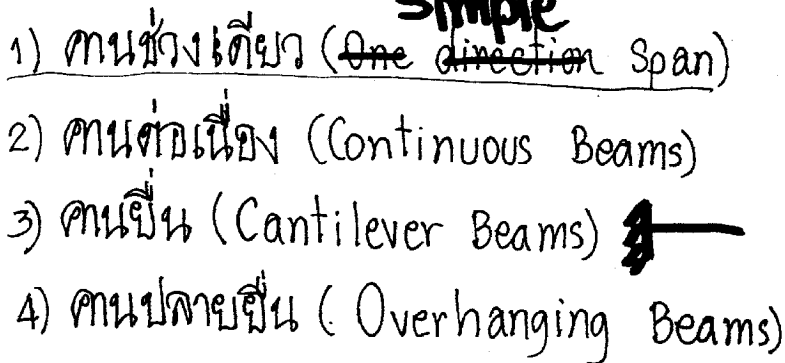 Simple
1) คานช่วงเดียว (One direction Span)
2) คานต่อเนื่อง (Continuous Beams)
3) คานยื่น (Cantilever Beams)
4) คานปลายยื่น (Overhanging Beams)